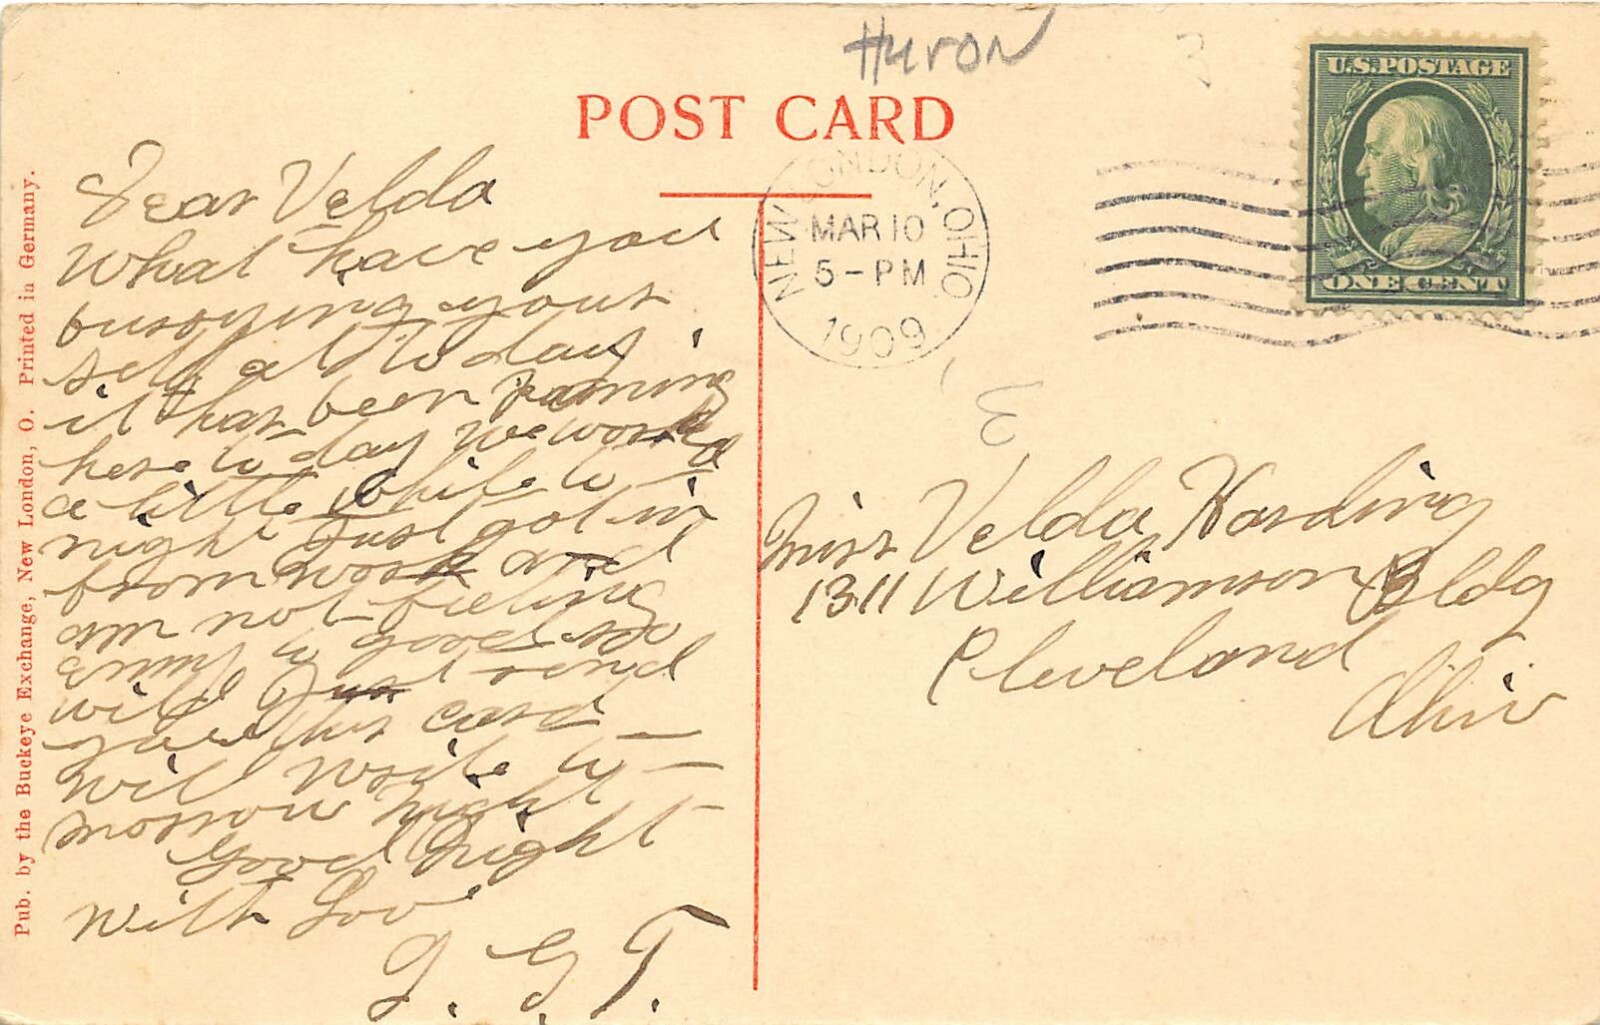 Huron
POST CARD
U.S. POSTAGE
ONE CENT
NEW LONDON, OHIO.
MAR 10
5 - PM
1909
Dear Velda
What have you
busoying your
self at to day,
it has been raining
here to-day we worked
a little while to-
night Just got in
from work and
am not feeling
very good so
will Just send
you this card
will write to-
morrow night
Good Night
With Love
G. T.
Miss Velda Harding
1311 Williamson Bldg
Cleveland
Ohio
Pub. by the Buckeye Exchange, New London, O. Printed in Germany.
3
3